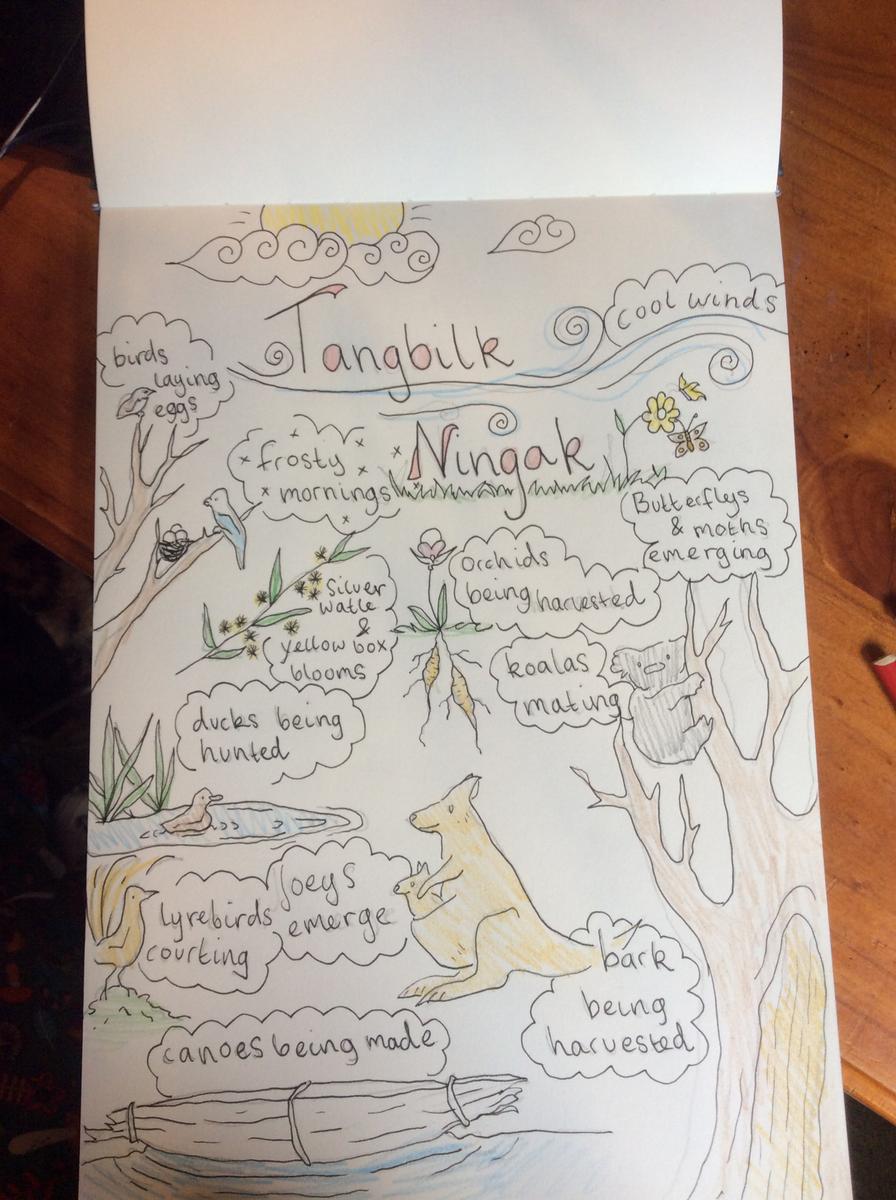 Tangbilk
cool winds
birds
laying
eggs
frosty
mornings
Ningak
Butterflys
& moths
emerging
Silver
watle
&
yellow box
blooms
orchids
being harvested
koalas
mating
ducks being
hunted
lyrebirds
courting
Joeys
emerge
bark
being
harvested
canoes being made